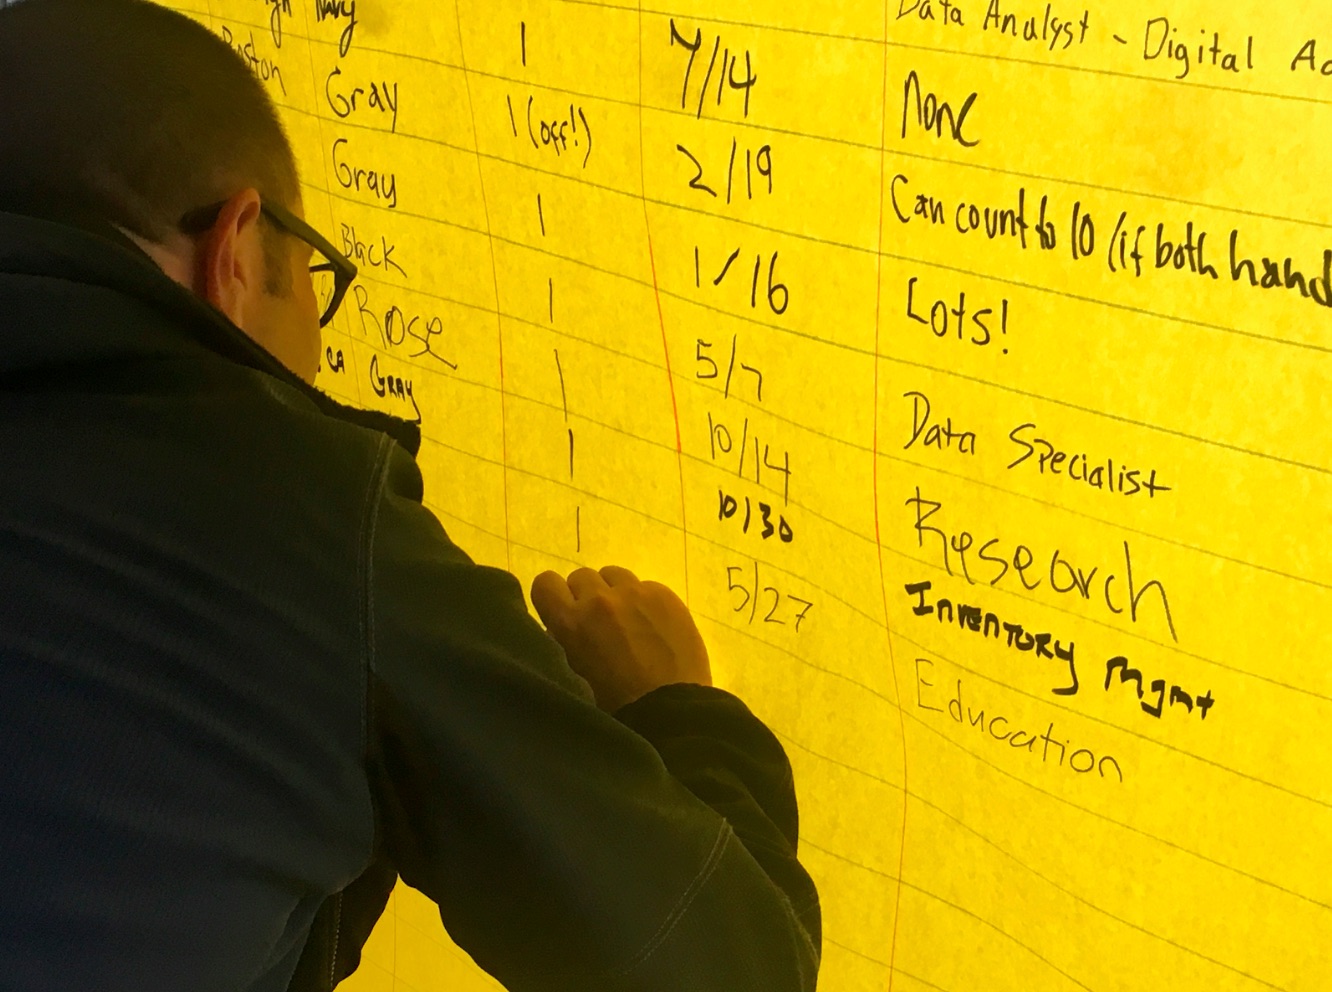 Navy 1 7/14 Data Analyst - Digital
Gray 1 (off!) 2/19 None
Gray 1 1/16 Can count to 10 (if both hand
Black 1 5/7 Lots!
Rose 1 10/14 Data Specialist
CA GRAY 1 10/30 Research
1 5/27 INVENTORY Mgmt
Education